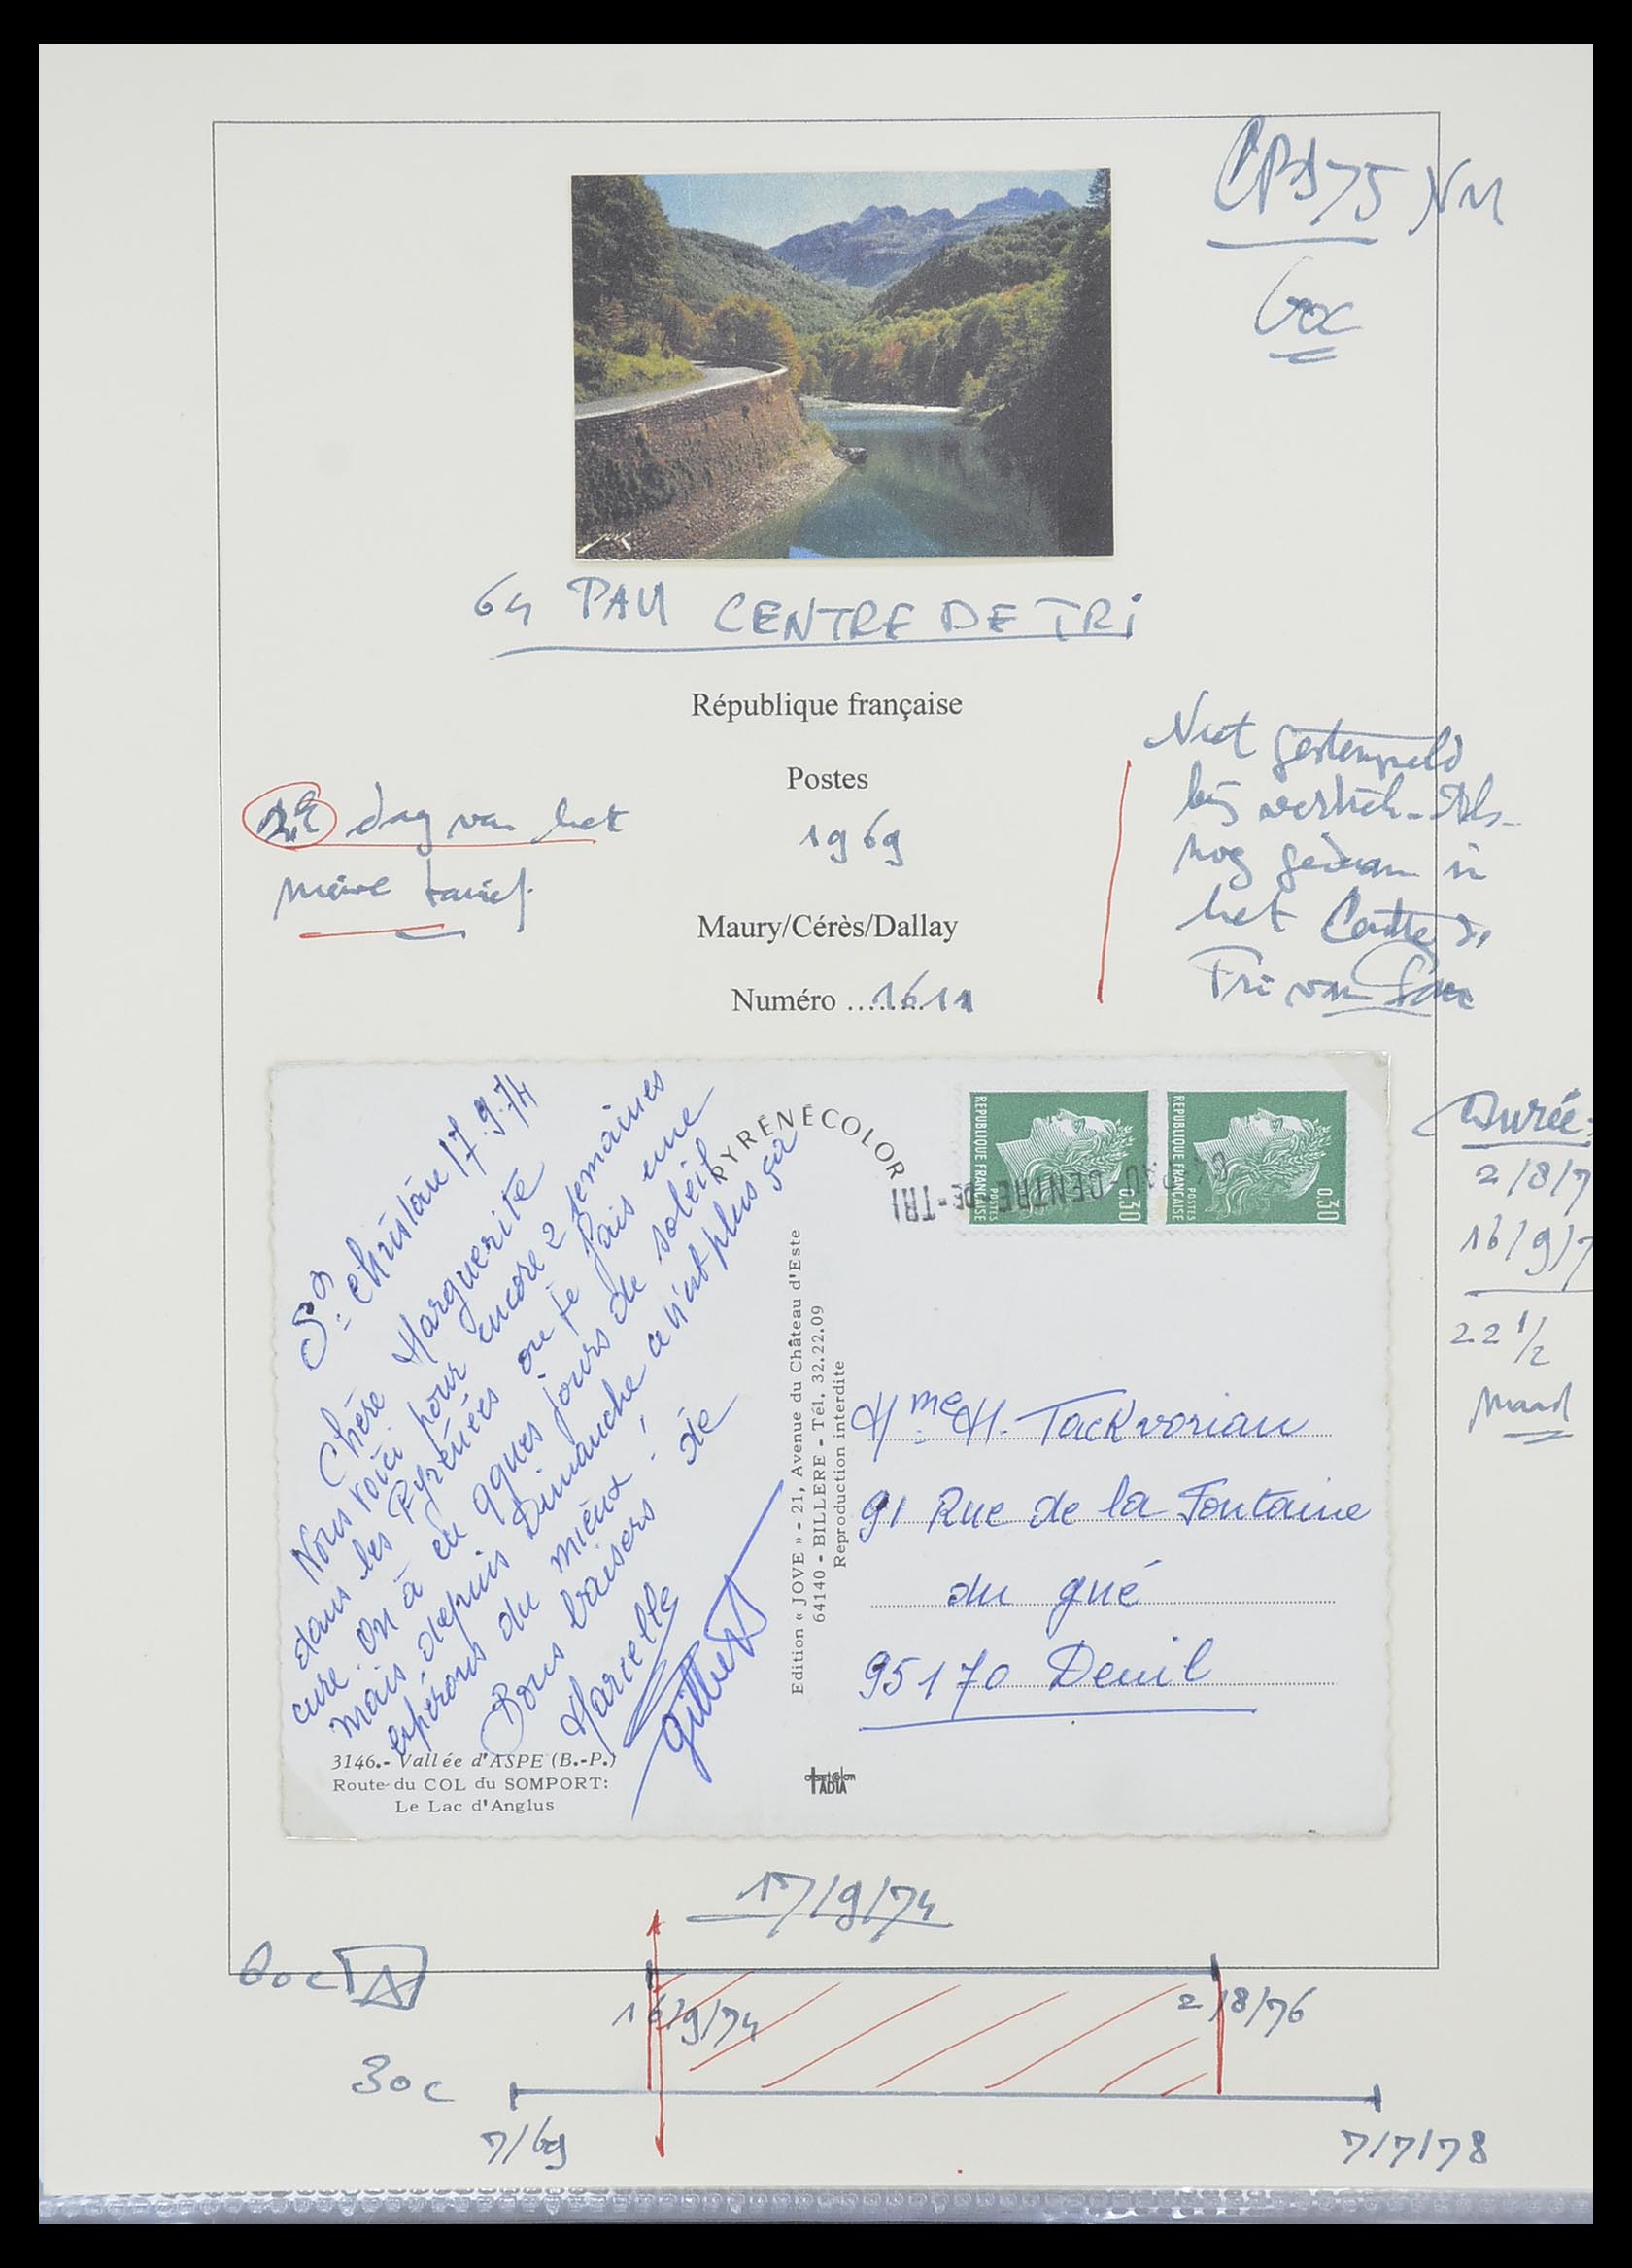 60c
64 PAU CENTRE DE TRI
République française
Postes
1969
Maury/Cérès/Dallay
Numéro ....... 1611
dag van het
tarief
Niet gestempeld
bij vertrek
nog gedaan in
het Centre de
Tri van Pau
Durée:
2/8/7
16/9/7
22 1/2
Maand
Ste Christine 17.9.74
Chère Marguerite
Nous voici pour encore 2 semaines
dans les Pyrénées ou je fais une
cure. On à eu qques jours de soleil
mais depuis Dimanche ce n'est plus ça
espérons du mieux !
Bons baisers de
Marcelle
Gilbert
3146.- Vallée d'ASPE (B.-P.)
Route du COL du SOMPORT:
Le Lac d'Anglus
PYRÉNÉCOLOR
Edition « JOVE » - 21, Avenue du Château d'Este
64140 - BILLERE - Tél. 32.22.09
Reproduction interdite
REPUBLIQUE FRANÇAISE
POSTES
0,30
REPUBLIQUE FRANÇAISE
POSTES
0,30
64 PAU CENTRE-DE-TRI
Mme M. Tackvorian
91 Rue de la Fontaine
du gué
95170 Deuil
17/9/74
60c
16/9/74
2/8/76
30c
7/69
7/7/78